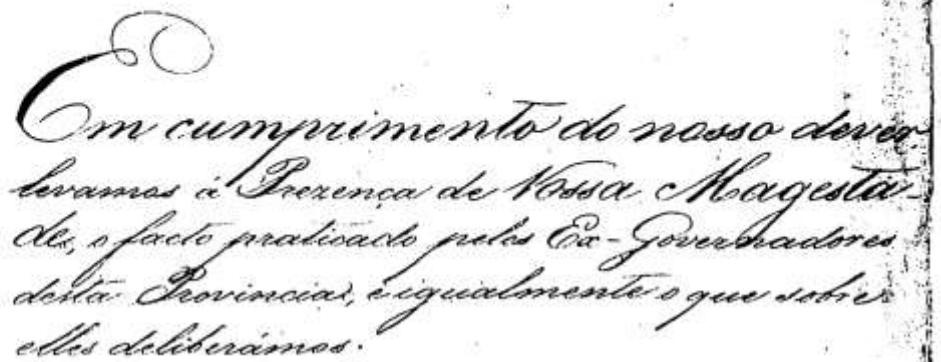 Em cumprimento do nosso dever
levamos á Prezença de Vossa Magesta-
de, o facto praticado pelos Ex-Governadores
desta Provincia, e igualmente o que sobre
elles deliberámos.